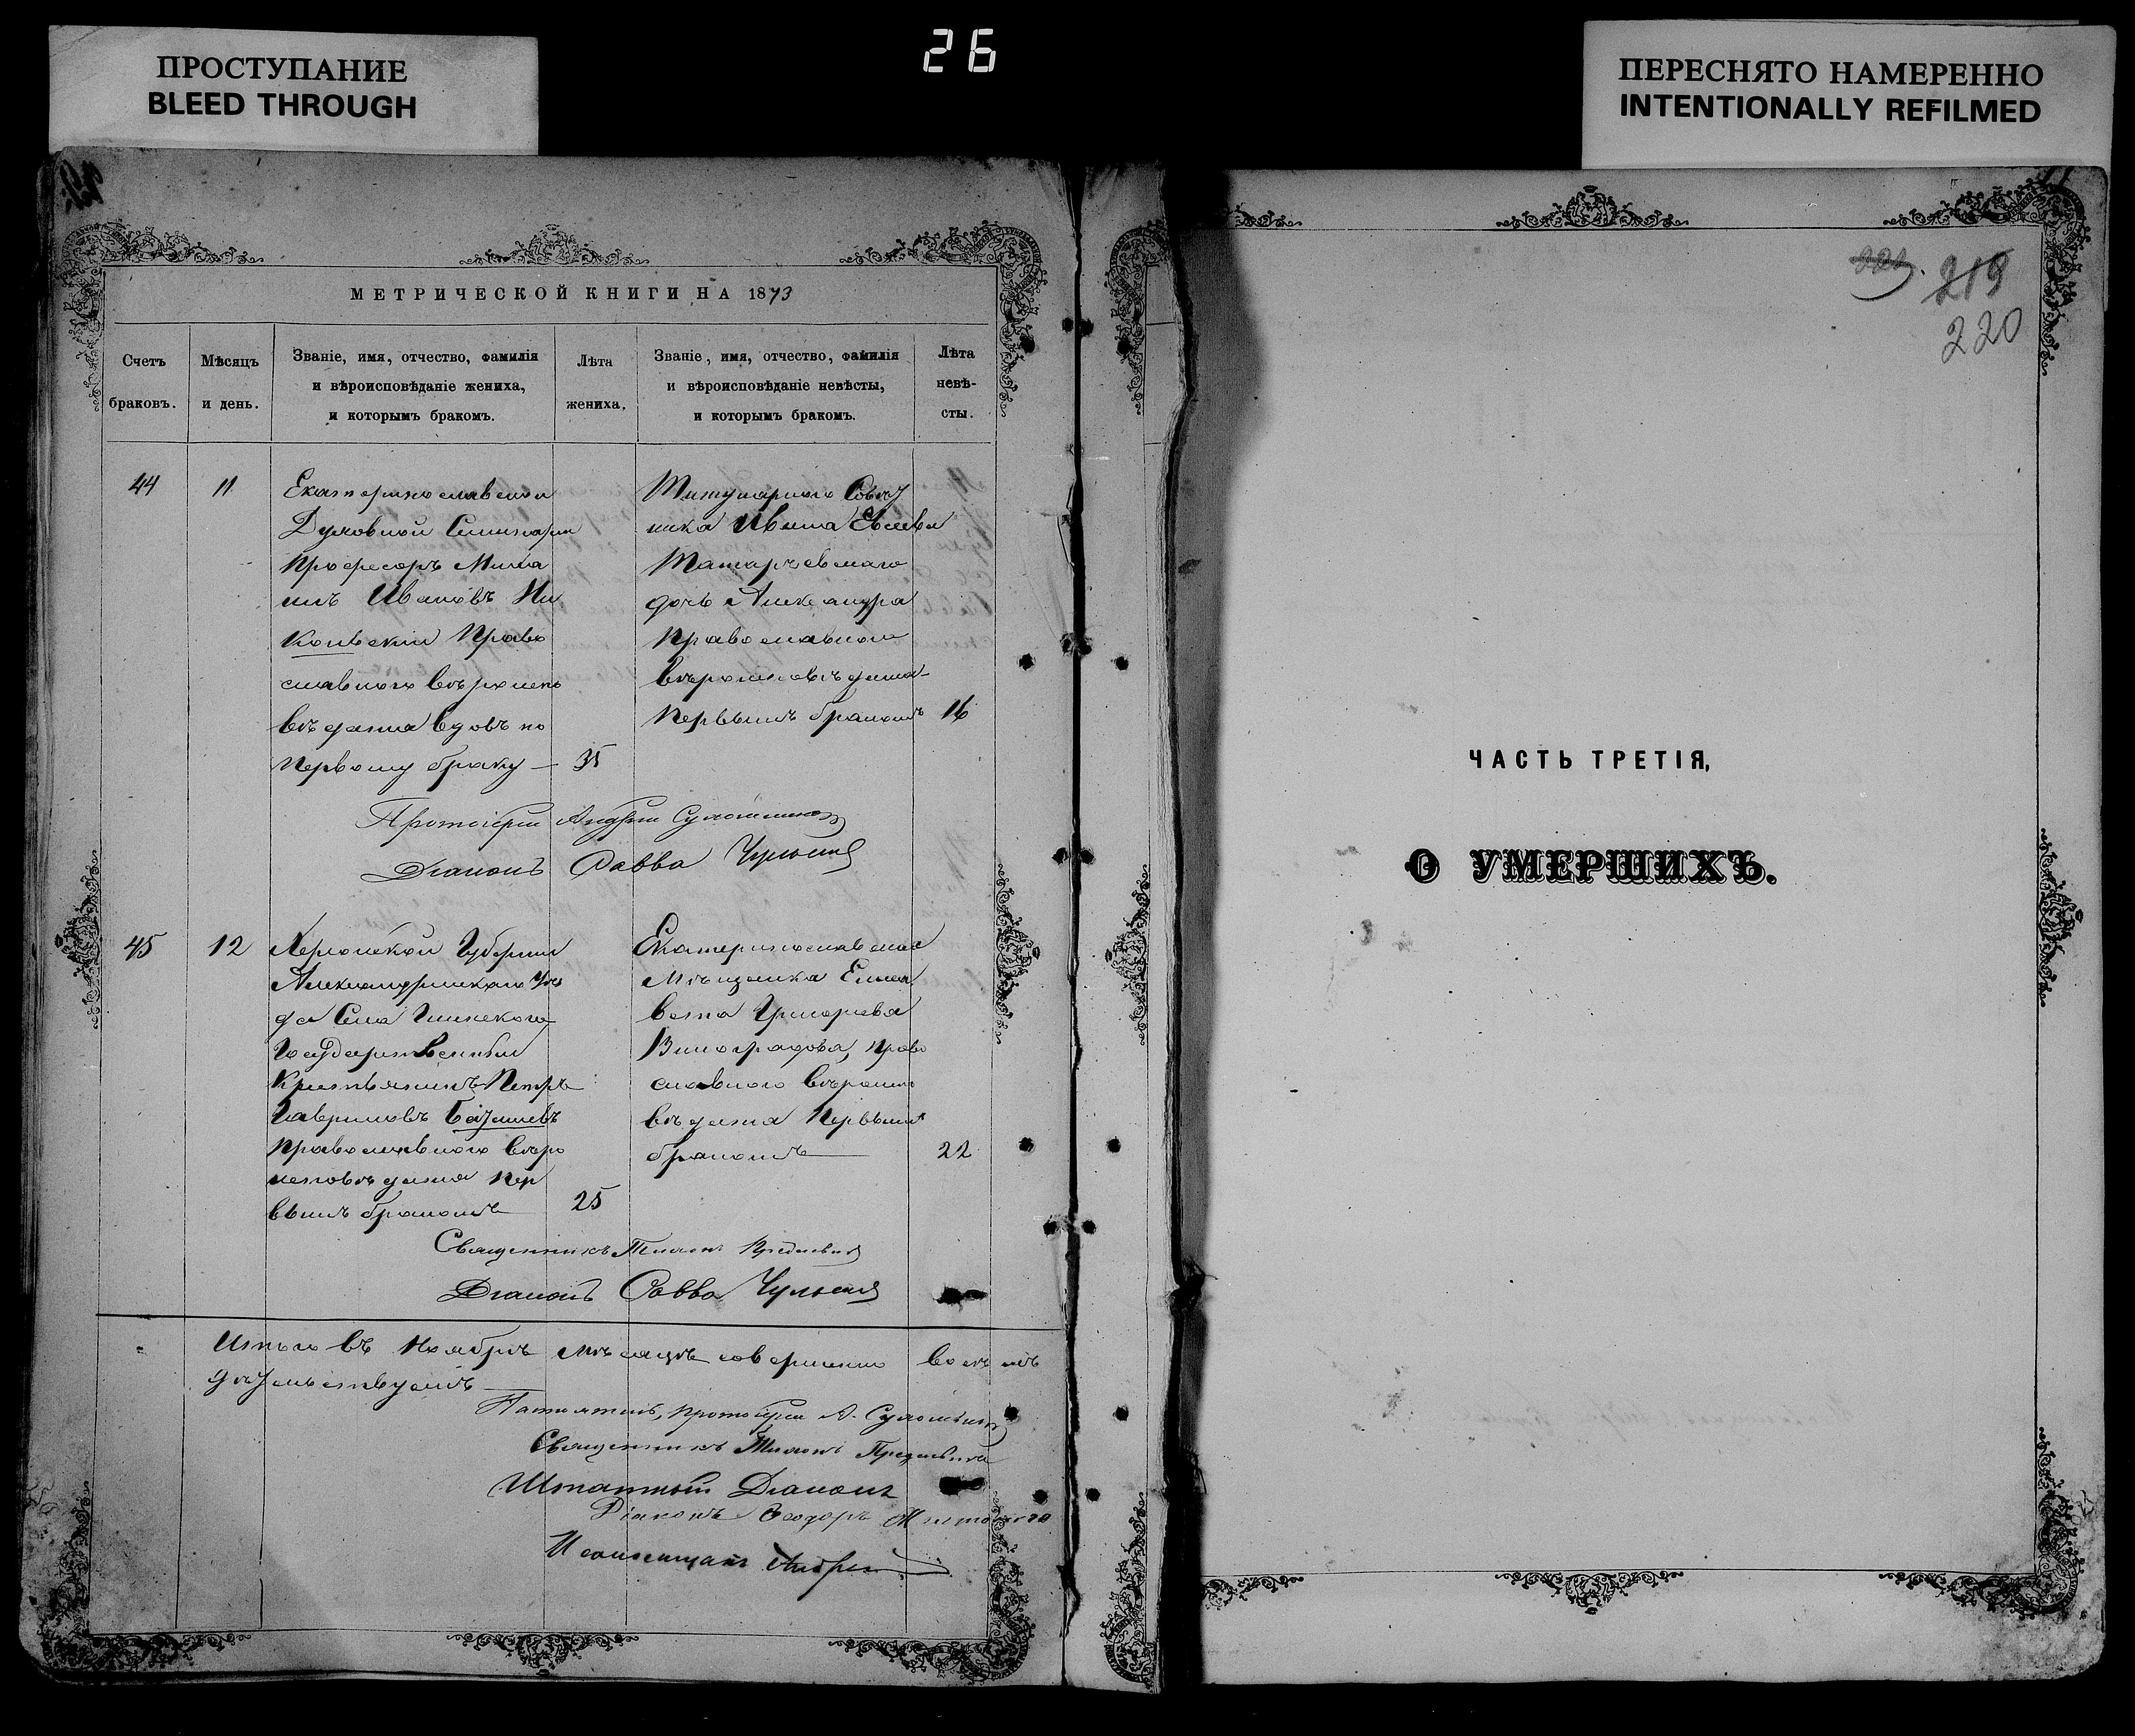 ПРОСТУПАНИЕ
BLEED THROUGH
26
ПЕРЕСНЯТО НАМЕРЕННО
INTENTIONALLY REFILMED
МЕТРИЧЕСКОЙ КНИГИ НА 1873
Счетъ
браковъ.
Мѣсяцъ
и день.
Званіе, имя, отчество, фамилія
и вѣроисповѣданіе жениха,
и которымъ бракомъ.
Лѣта
жениха.
Званіе, имя, отчество, фамилія
и вѣроисповѣданіе невѣсты,
и которымъ бракомъ.
Лѣта
невѣ-
сты.
44
11
Екатеринославской
Духовной Семинаріи
Професоръ Миха
илъ Ивановъ Ни
кольскій Право
славнаго вѣроиспо
вѣданія вдовъ по
первому браку — 35
Титулярнаго Совѣт
ника Ивана
дочь Александра
Православнаго
вѣроисповѣданія
первымъ бракомъ 16
Протоіерей Андрей
Діаконъ Савва
45
12
Херсонской Губерніи
Александрійскаго Уѣз
да Села
Государственный
Крестьянинъ Петръ
Гавриловъ
Православнаго вѣро
исповѣданія пер
вымъ бракомъ 25
Екатеринославская
Мѣщанка Елиса
вета Григорьева
Виноградова, право
славнаго вѣроиспо
вѣданія первымъ
бракомъ 22
Священникъ Тихонъ
Діаконъ Савва
Итого въ Ноябрѣ мѣсяцѣ совершено
Протоіерей А.
Священникъ Тихонъ
Штатный Діаконъ
Діаконъ Ѳеодоръ
Андрей
221. 219
220
ЧАСТЬ ТРЕТІЯ,
О УМЕРШИХЪ.